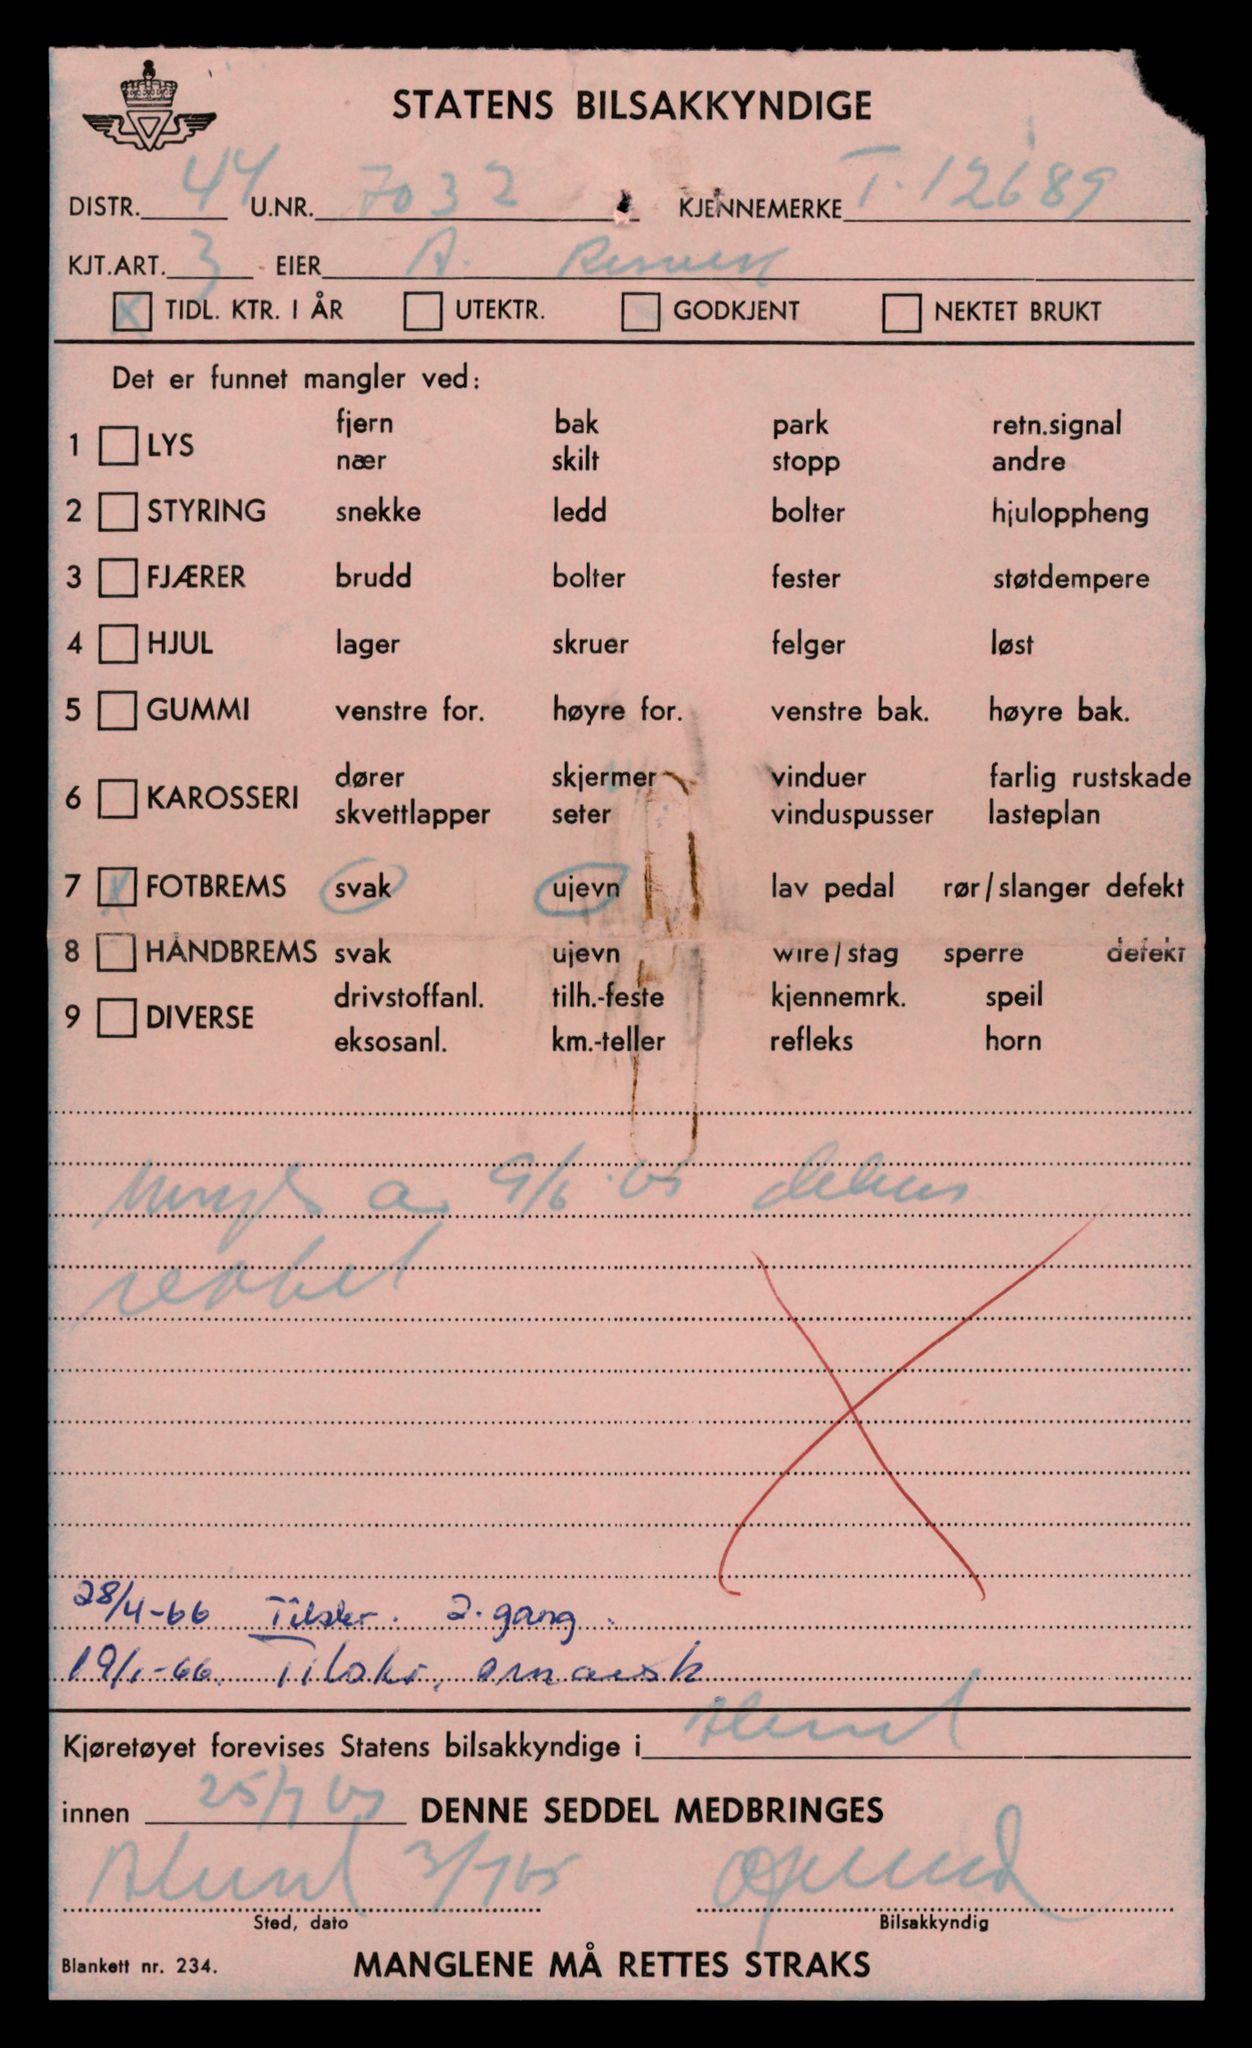 STATENS BILSAKKYNDIGE
DISTR. 44 U.NR. 7032 KJENNEMERKE T-12689
KJT.ART. 3 EIER A.
X TIDL. KTR. I ÅR UTEKTR. GODKJENT NEKTET BRUKT
Det er funnet mangler ved:
fjern bak park retn.signal
1 LYS
nær skilt stopp andre
2 STYRING snekke ledd bolter hjuloppheng
3 FJÆRER brudd bolter fester støtdempere
4 HJUL lager skruer felger løst
5 GUMMI venstre for. høyre for. venstre bak. høyre bak.
dører skjermer vinduer farlig rustskade
6 KAROSSERI
skvettlapper seter vinduspusser lasteplan
7 X FOTBREMS svak ujevn lav pedal rør/slanger defekt
8 HÅNDBREMS svak ujevn wire/stag sperre defekt
drivstoffanl. tilh.-feste kjennemrk. speil
9 DIVERSE
eksosanl. km.-teller refleks horn
a 9/6-65 delvis
rettet
28/4-66 Tilskr. 2. gang.
19/1-66. Tilskr.
Kjøretøyet forevises Statens bilsakkyndige i Ålesund
innen 25/7 65 DENNE SEDDEL MEDBRINGES
Ålesund 3/7 65
Sted, dato Bilsakkyndig
Blankett nr. 234. MANGLENE MÅ RETTES STRAKS